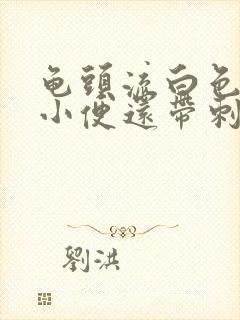 龟頭流白色
小便還帶刺
劉洪